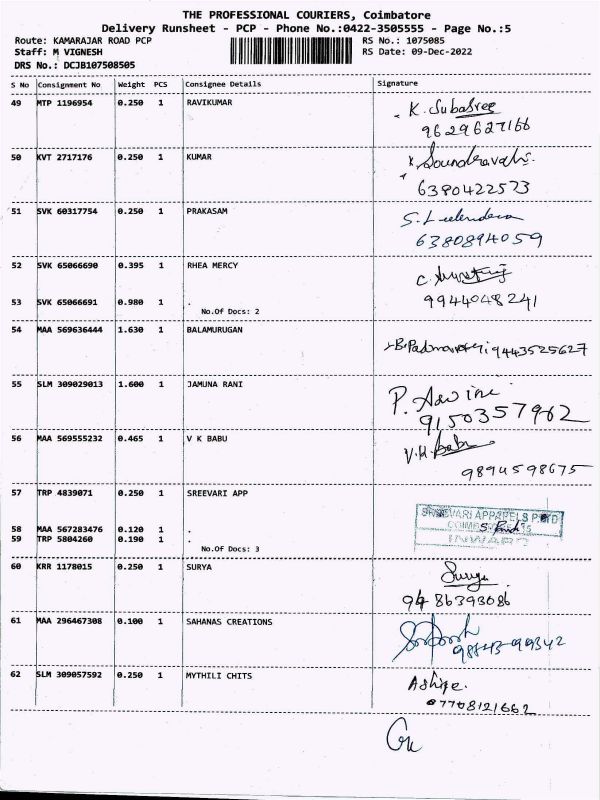 THE PROFESSIONAL COURIERS, Coimbatore
Delivery Runsheet - PCP - Phone No.:0422-3505555 - Page No.:5
Route: KAMARAJAR ROAD PCP RS No.: 1075085
Staff: M VIGNESH RS Date: 09-Dec-2022
DRS No.: DCJB107508505
S No Consignment No Weight PCS Consignee Details Signature
49 MTP 1196954 0.250 1 RAVIKUMAR K. Subasree
9629627166
50 KVT 2717176 0.250 1 KUMAR
6380422573
51 SVK 60317754 0.250 1 PRAKASAM
6380894059
52 SVK 65066690 0.395 1 RHEA MERCY
53 SVK 65066691 0.980 1 . 9944048241
No.Of Docs: 2
54 MAA 569636444 1.630 1 BALAMURUGAN 9443525627
55 SLM 309029013 1.600 1 JAMUNA RANI P. Aswini
9150357962
56 MAA 569555232 0.465 1 V K BABU V.K. Babu
9894598675
57 TRP 4839071 0.250 1 SREEVARI APP
SREEVARI APPARELS P LTD
58 MAA 567283476 0.120 1 .
59 TRP 5804260 0.190 1 INWARD
No.Of Docs: 3
60 KRR 1178015 0.250 1 SURYA Surya
9486393086
61 MAA 296467308 0.100 1 SAHANAS CREATIONS
62 SLM 309057592 0.250 1 MYTHILI CHITS
7708121662